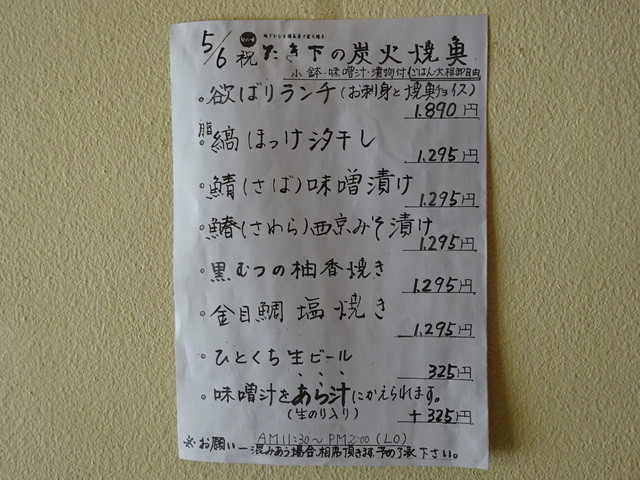 5/6 祝 たき下の炭火焼魚
小鉢・味噌汁・漬物付 ごはん大祖御自由
・欲ばりランチ(お刺身と焼魚チョイス)
1.890円
脂
・縞ほっけ汐干し
1.295円
・鯖(さば)味噌漬け
1.295円
・鰆(さわら)西京みそ漬け
1.295円
・黒むつの柚香焼き
1.295円
・金目鯛 塩焼き
1.295円
・ひとくち生ビール
325円
・味噌汁をあら汁にかえられます。
(生のり入り)
+325円
AM11:30~PM2:00(LO)
※お願い―混みあう場合、相席頂きます。予め了承下さい。